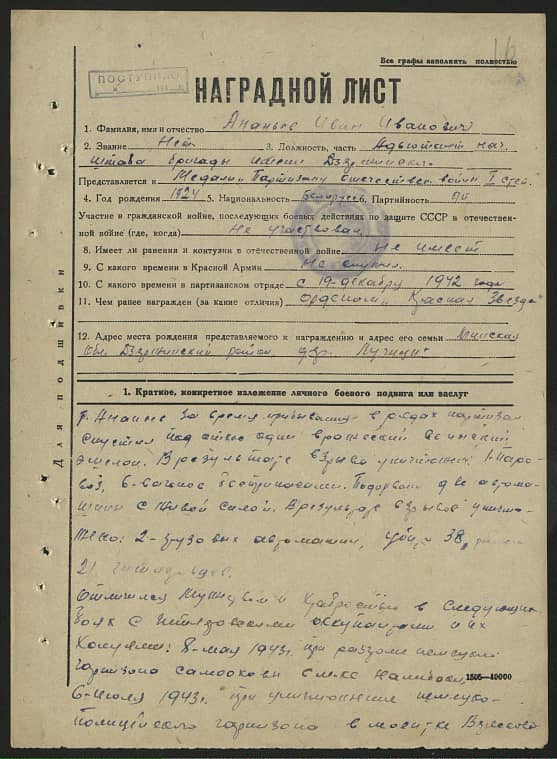 16
Все графы заполнить полностью
ПОСТУПИЛО
НАГРАДНОЙ ЛИСТ
1. Фамилия, имя и отчество Ананьев Иван Иванович
2. Звание Нет 3. Должность, часть Адъютант нач.
штаба бригады имени Дзержинского.
Представляется к Медали „Партизану отечествен. войны" I степ.
4. Год рождения 1924 5. Национальность белорус 6. Партийность
Участие в гражданской войне, последующих боевых действиях по защите СССР в отечествен-
ной войне (где, когда) Не участвовал
8. Имеет ли ранения и контузии в отечественной войне Не имеет
9. С какого времени в Красной Армии Не служил.
10. С какого времени в партизанском отряде с 19 декабря 1942 года
11. Чем ранее награжден (за какие отличия) орденом „Красная Звезда"
12. Адрес места рождения представляемого к награждению и адрес его семьи Минская
обл. Дзержинский район дер.
Для подшивки
1. Краткое, конкретное изложение личного боевого подвига или заслуг
за время в рядах партизан
спустил под откос один вражеский воинский
эшелон. В результате взрыва уничтожен: 1-паро-
воз, 6-вагонов с боеприпасами. Подорвал две автома-
шины с живой силой. В результате взрывов уничто-
жено: 2-грузовых автомашин, убито 38,
21
Отличился мужеством и храбростью в следующих
боях с оккупантами и их
8-мая 1943г. при разгоме немецко
гарнизона
1505—10000
6-июля 1943г. при уничтожении немецко-
полицейского гарнизона в